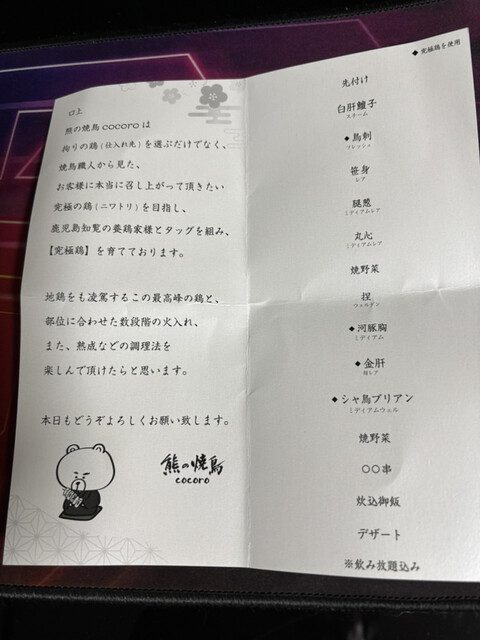 口上
熊の焼鳥cocoroは
拘りの鶏(仕入れ先)を選ぶだけでなく、
焼鳥職人から見た、
お客様に本当に召し上がって頂きたい
究極の鶏(ニワトリ)を目指し、
鹿児島知覧の養鶏家様とタッグを組み、
【究極鶏】を育てております。
地鶏をも凌駕するこの最高峰の鶏と、
部位に合わせた数段階の火入れ、
また、熟成などの調理法を
楽しんで頂けたらと思います。
本日もどうぞよろしくお願い致します。
熊の焼鳥
cocoro
◆究極鶏を使用
先付け
白肝鱣子
スチーム
◆鳥刺
フレッシュ
笹身
レア
腿葱
ミディアムレア
丸心
ミディアムレア
焼野菜
捏
ウェルダン
◆河豚胸
ミディアム
◆金肝
超レア
◆シャ鳥ブリアン
ミディアムウェル
焼野菜
○○串
炊込御飯
デザート
※飲み放題込み